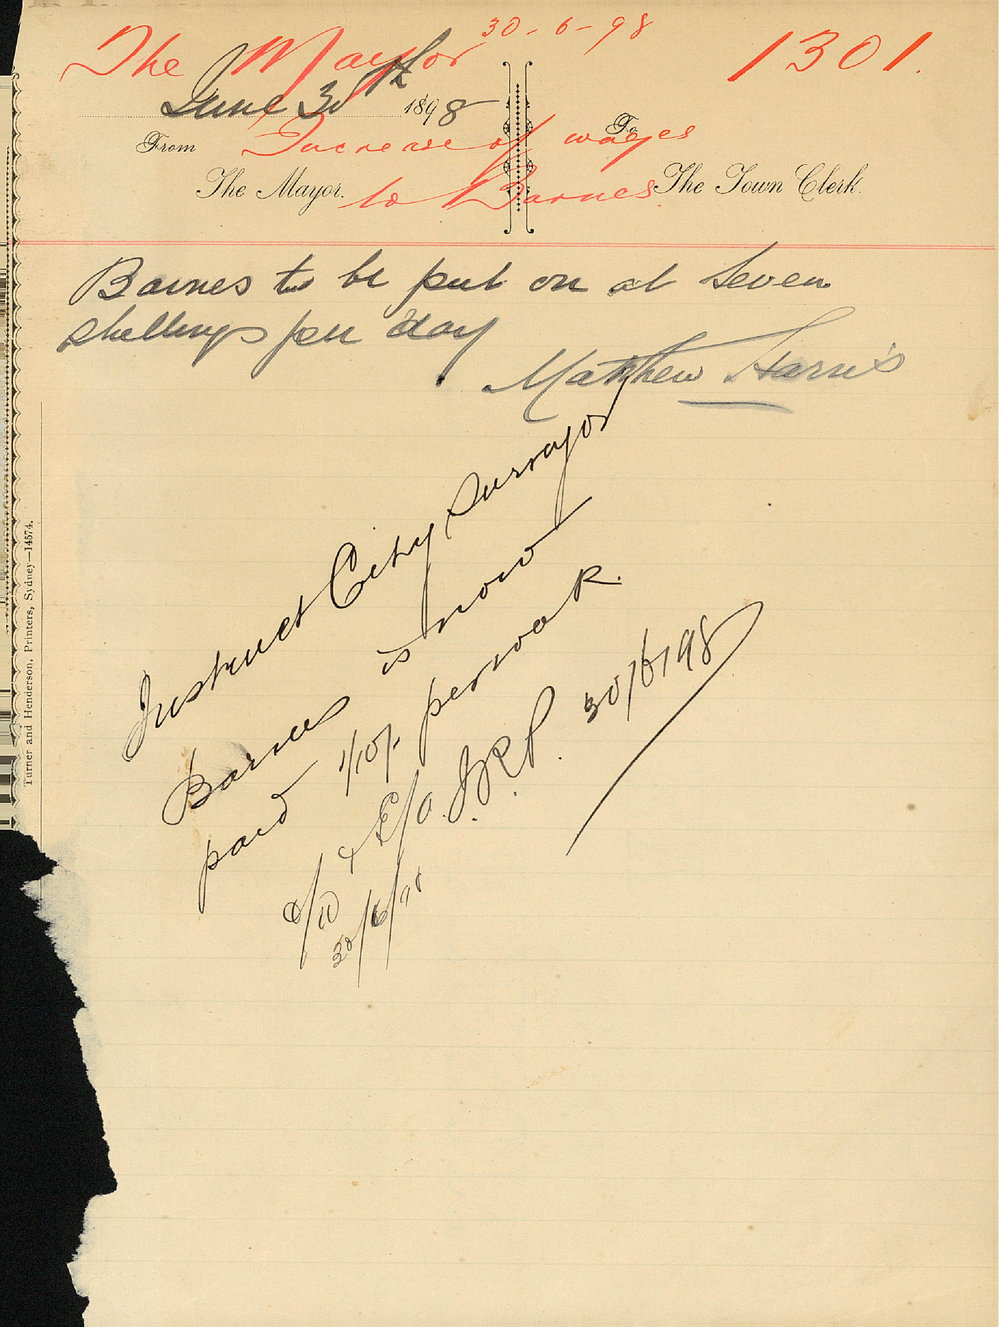 30-6-98
The Mayor 1301.
June 30th 1898
From To
Increase of wages
The Mayor. The Town Clerk.
to Barnes.
Barnes to be put on at Seven
shellings per day
Matthew Harris
Instruct City Surveyor
Barnes is now
paid 1/10/- per week.
E/O. J.R.P. 30/6/98
30/6/98
Turner and Henderson, Printers, Sydney—14574.